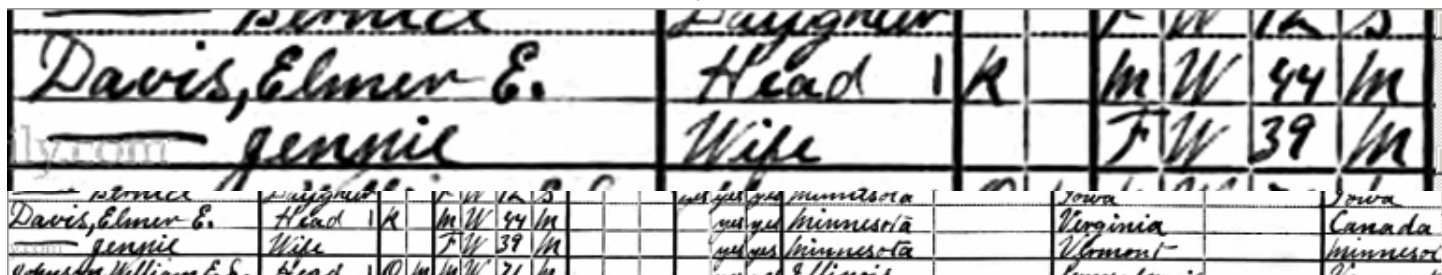 Bernice Daughter F W 12 S
Davis, Elmer E. Head 1 R M W 44 M
ily.com
— Jennie Wife F W 39 M
Bernice Daughter F W 12 S yes yes yes Minnesota Iowa Iowa
Davis, Elmer E. Head 1 R M W 44 M yes yes Minnesota Virginia Canada
— Jennie Wife F W 39 M yes yes Minnesota Vermont Minnesot
Johnson William E. S. Head 1 O M M W 71 M Illinois